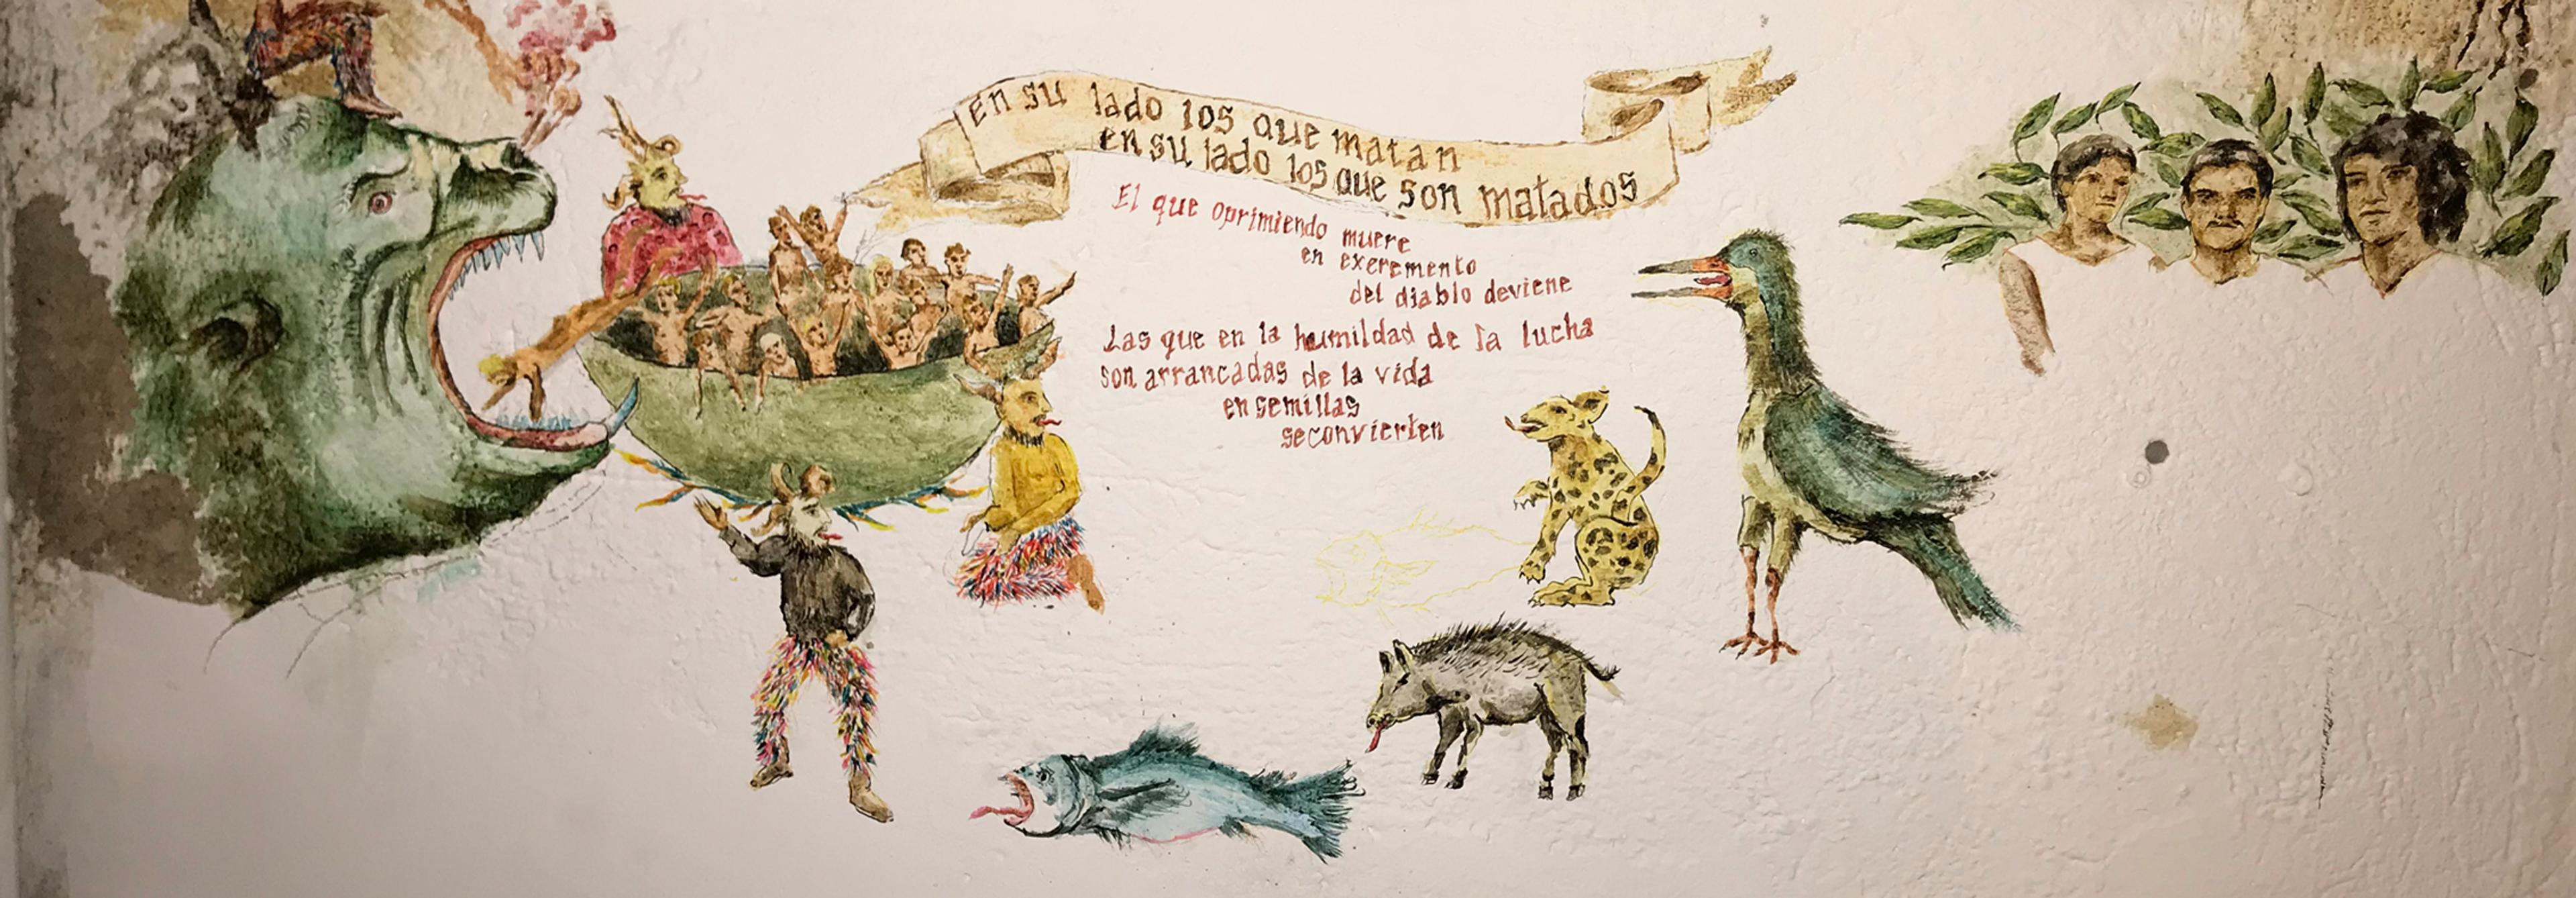 En su lado los que matan
en su lado los que son matados
El que oprimiendo muere
en exeremento
del diablo deviene
Las que en la humildad de la lucha
son arrancadas de la vida
en semillas
seconvierten